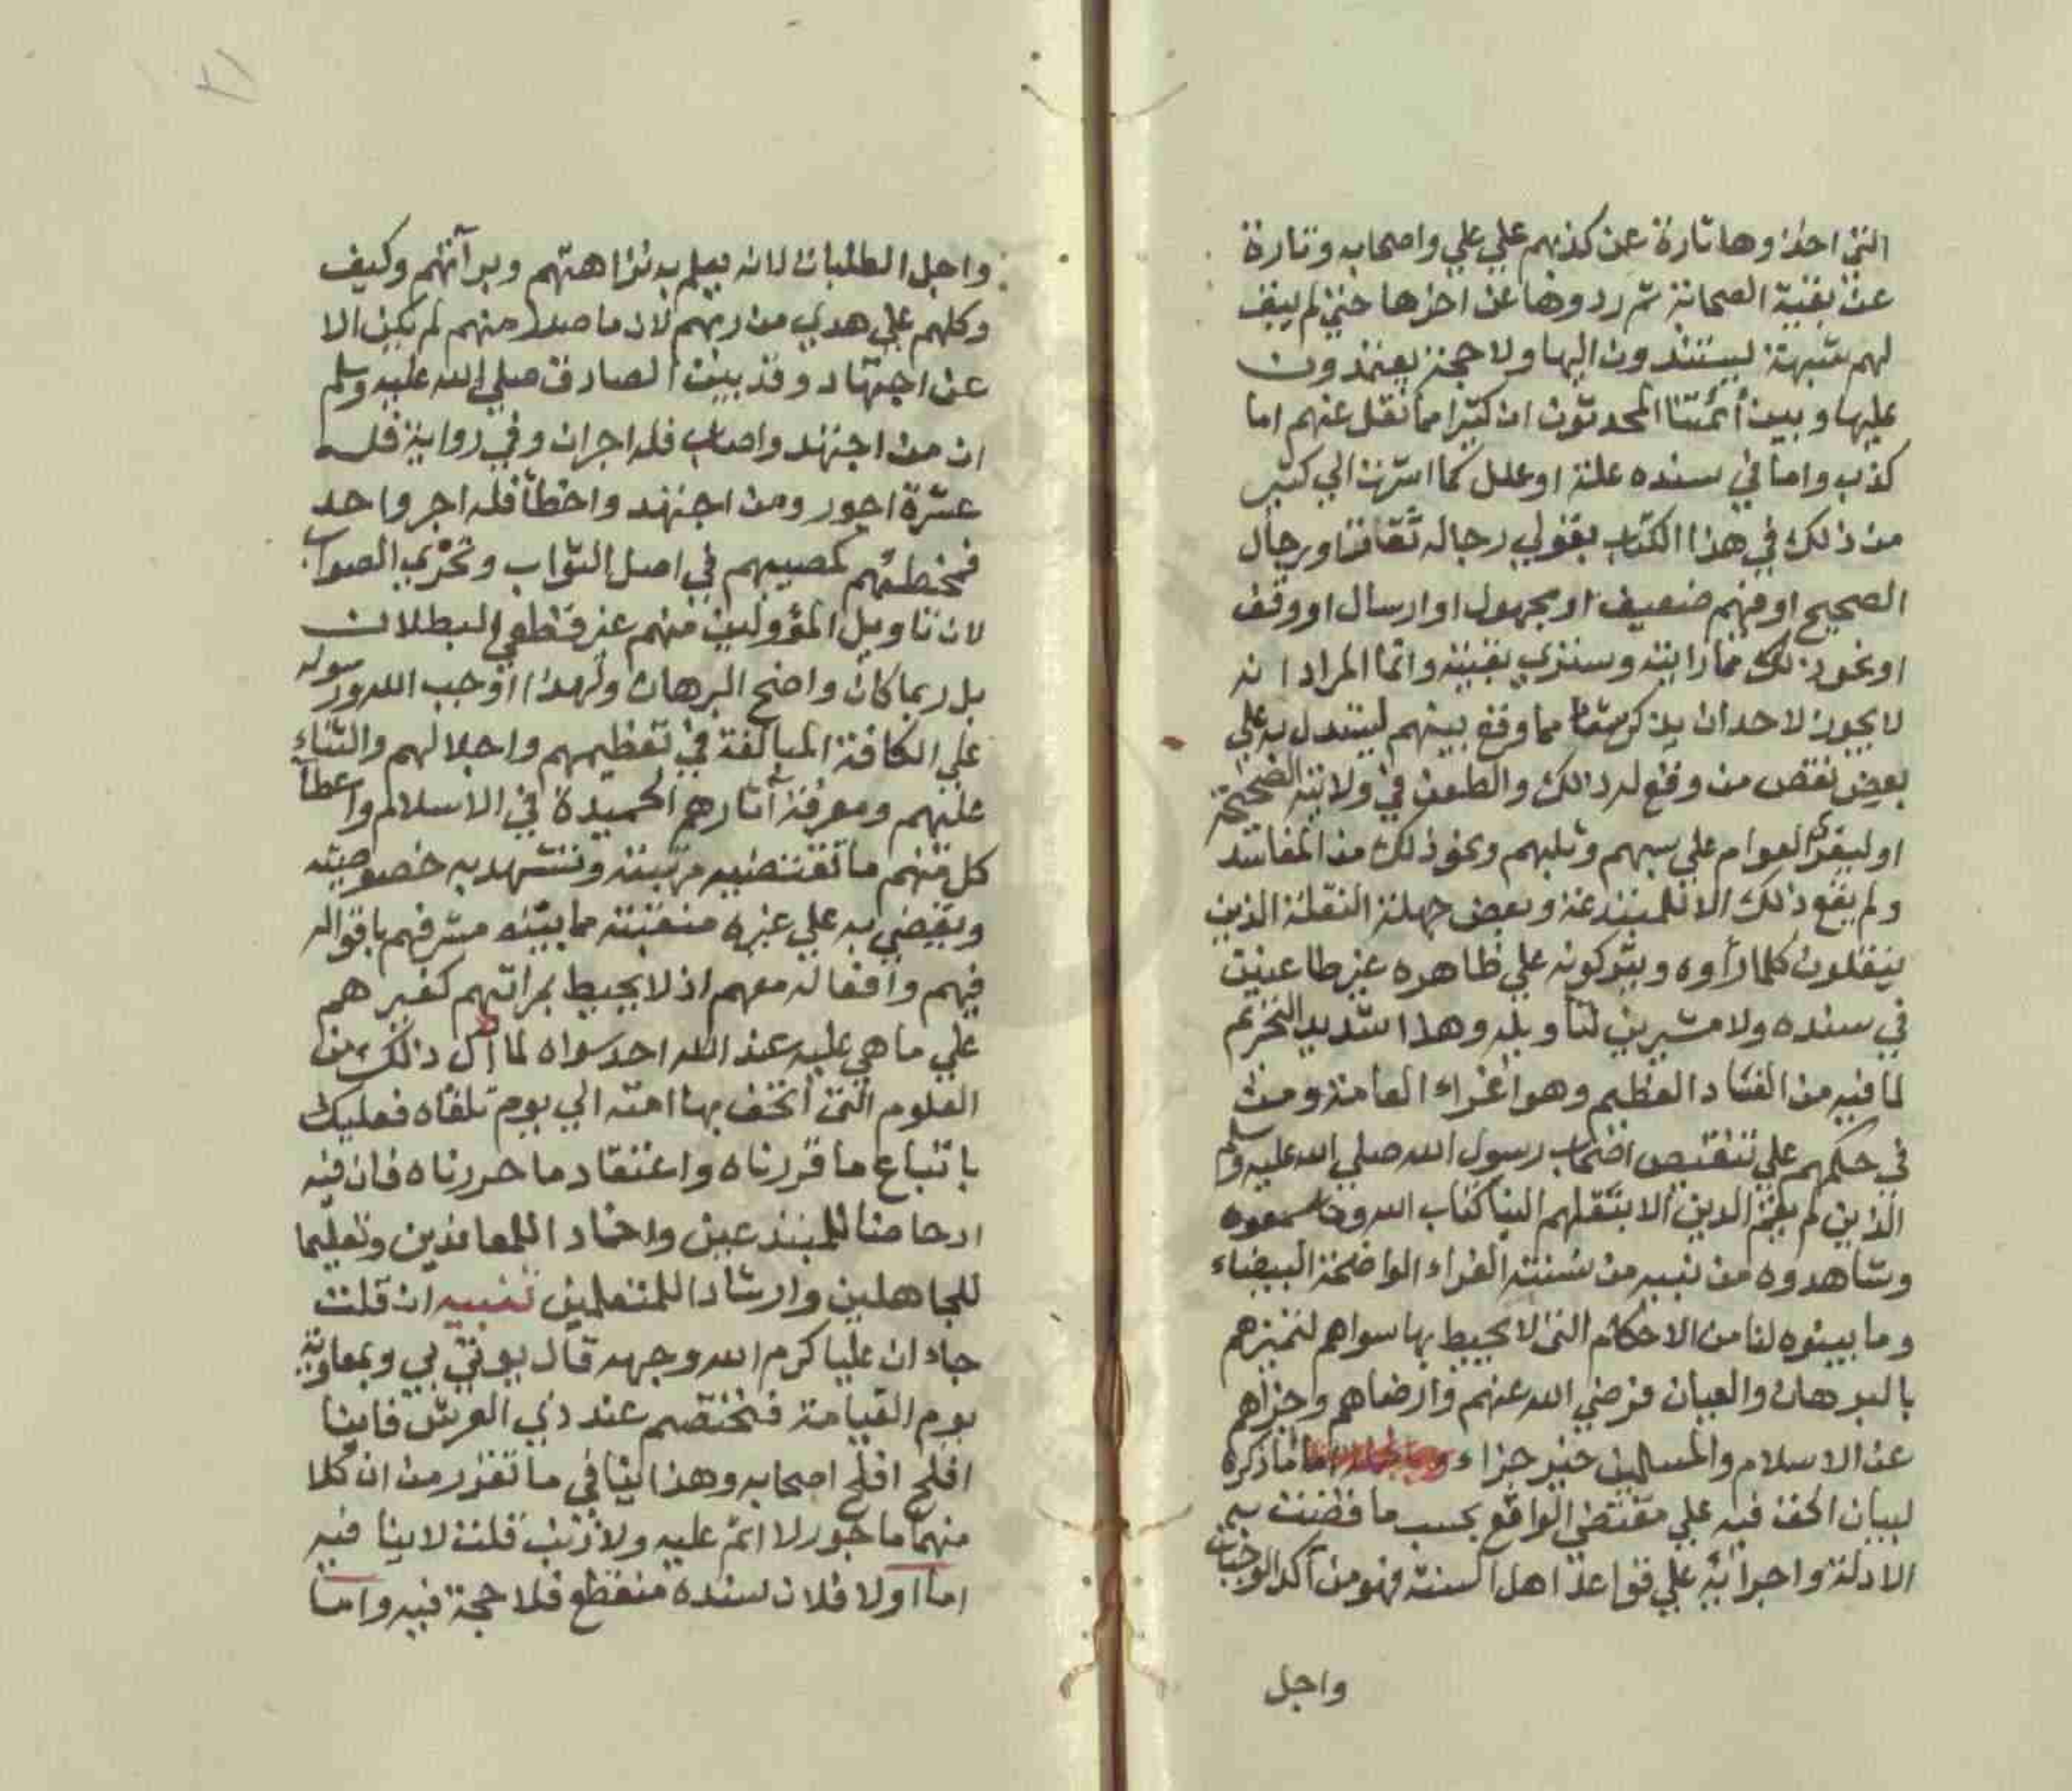 التي اخذوها تارة عن كذبهم علي علي واصحابه وتارة
عن بقية الصحابة ثم ردوها عن اخرها حتي لم يبق
لهم شبهة يستندون اليها ولا حجة يعتمدون
عليها وبين أئمتنا المحدثون ان كثيرا مما نقل عنهم اما
كذب واما في سنده علة او علل كما اشرت الي كثير
من ذلك في هذا الكتاب بقولي رجاله ثقات او رجال
الصحيح او فيهم ضعيف او مجهول او ارسال او وقف
او نحو ذلك مما رايته وستري بقيته وانما المراد انه
لا يجوز لاحد ان يذكر شيئا مما وقع بينهم ليستدل به علي
بعض نقص من وقع له ذالك والطعن في ولايته الصحيحة
او ليغري العوام علي سبهم وثلبهم ونحو ذلك من المفاسد
ولم يقع ذلك الا للمبتدعة وبعض جهلة النقلة الذين
ينقلون كلما رأوه ويتركونه علي ظاهره غير طاعنين
في سنده ولا مشيرين لتأويله وهذا شديد التحريم
لما فيه من الفساد العظيم وهو اغراء العامة ومن
في حكمهم علي تنقيص اصحاب رسول الله صلي الله عليه وسلم
الذين لم يقم الدين الا بنقلهم الينا كتاب الله وما سمعوه
وشاهدوه من نبيه من سنته الغراء الواضحة البيضاء
وما بينوه لنا من الاحكام التي لا يحيط بها سواهم لتميزهم
بالبرهان والعيان فرضي الله عنهم وارضاهم وجزاهم
عن الاسلام والمسلمين خير جزاء اما ما ذكره
لبيان الحق فيه علي مقتضي الواقع بحسب ما قضت به
الادلة واجرائه علي قواعد اهل السنة فهو من آكد الواجبات
واجل
٢١
واجل الطلبات لانه يعلم به نزاهتهم وبرآئتهم وكيف
وكلهم علي هدي من ربهم لان ما صدر منهم لم يكن الا
عن اجتهاد وقد بين الصادق صلي الله عليه وسلم
ان من اجتهد واصاب فله اجران وفي رواية فله
عشرة اجور ومن اجتهد واخطأ فله اجر واحد
فمخطئهم كمصيبهم في اصل الثواب وتحري الصواب
لان تاويل المؤولين منهم غير قطعي البطلان
بل ربما كان واضح البرهان ولهذا اوجب الله ورسوله
علي الكافة المبالغة في تعظيمهم واجلالهم والثناء
عليهم ومعرفة آثارهم الحميدة في الاسلام واعطآ
كل منهم ما تقتضيه مرتبته وتشهد به خصوصيته
ويقضي به علي غيره منقبته مما بينه مشرفهم باقواله
فيهم وافعاله معهم اذ لا يحيط بمراتبهم كغيرهم
علي ما هي عليه عند الله احد سواه لما ان ذالك من
العلوم التي اتحف بها امته الي يوم تلقاه فعليك
باتباع ما قررناه واعتقاد ما حررناه فان فيه
ادحاضا للمبتدعين واخمادا للمعاندين وتعليما
للجاهلين وارشادا للمتعلمين تنبيه ان قلت
جاء ان عليا كرم الله وجهه قال يوتي بي وبمعاوية
يوم القيامة فنختصم عند ذي العرش فاينا
افلح افلح اصحابه وهذا ينافي ما تقرر من ان كلا
منهما ماجور لا اثم عليه ولا ذنب قلت لا ينافيه
اما اولا فلان سنده منقطع فلا حجة فيه واما